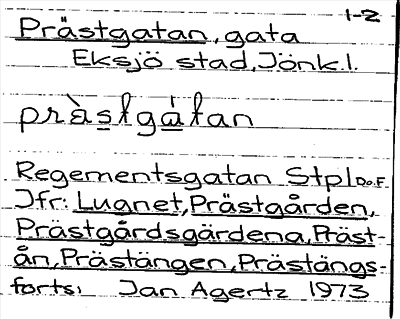 1-2
Prästgatan, gata
Eksjö stad, Jönk.l.
prà̀stgátan
Regementsgatan Stpl D.o.F.
Jfr: Lugnet, Prästgården,
Prästgårdsgärdena, Präst-
ån, Prästängen, Prästängs-
forts. Jan Agertz 1973